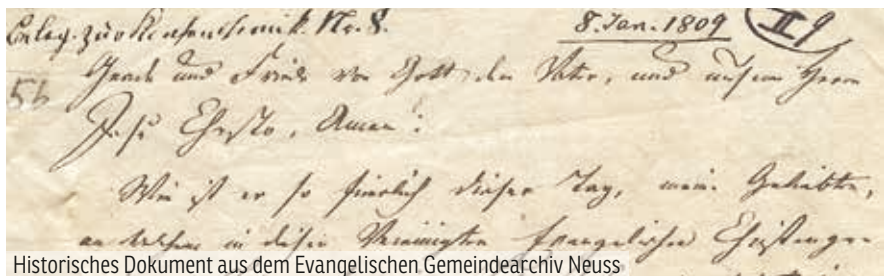 Beleg. zur Kirchenchronik. Nr. 8. 8. Jan. 1809 II 9
56 Gnade und Friede von Gott dem Vater, und unserm Herrn
Jesu Christo, Amen!
Wie ist er so feierlich dieser Tag, meine Geliebten,
an welchem in dieser Vereinigten Evangelischen Christenge-
Historisches Dokument aus dem Evangelischen Gemeindearchiv Neuss